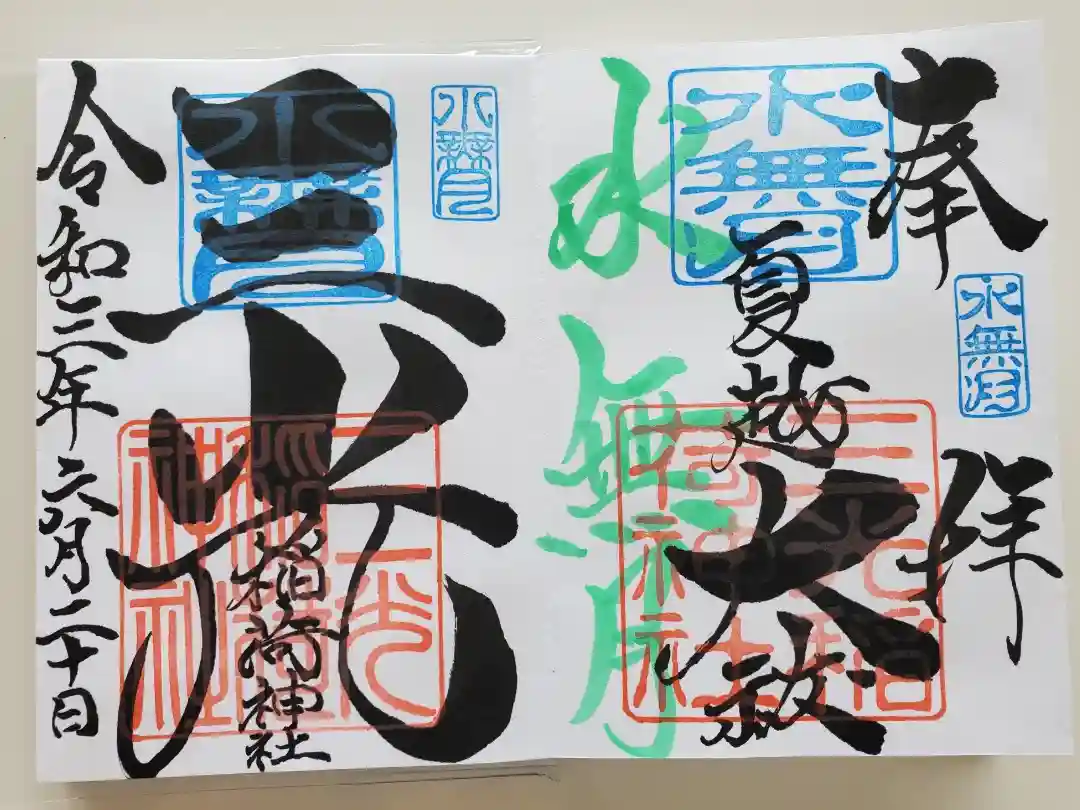 奉拝
水無月
水無月
夏越
大祓
水無月
三光稲荷神社
水無月
水無月
三光
稲荷神社
三光稲荷神社
令和三年六月二十日